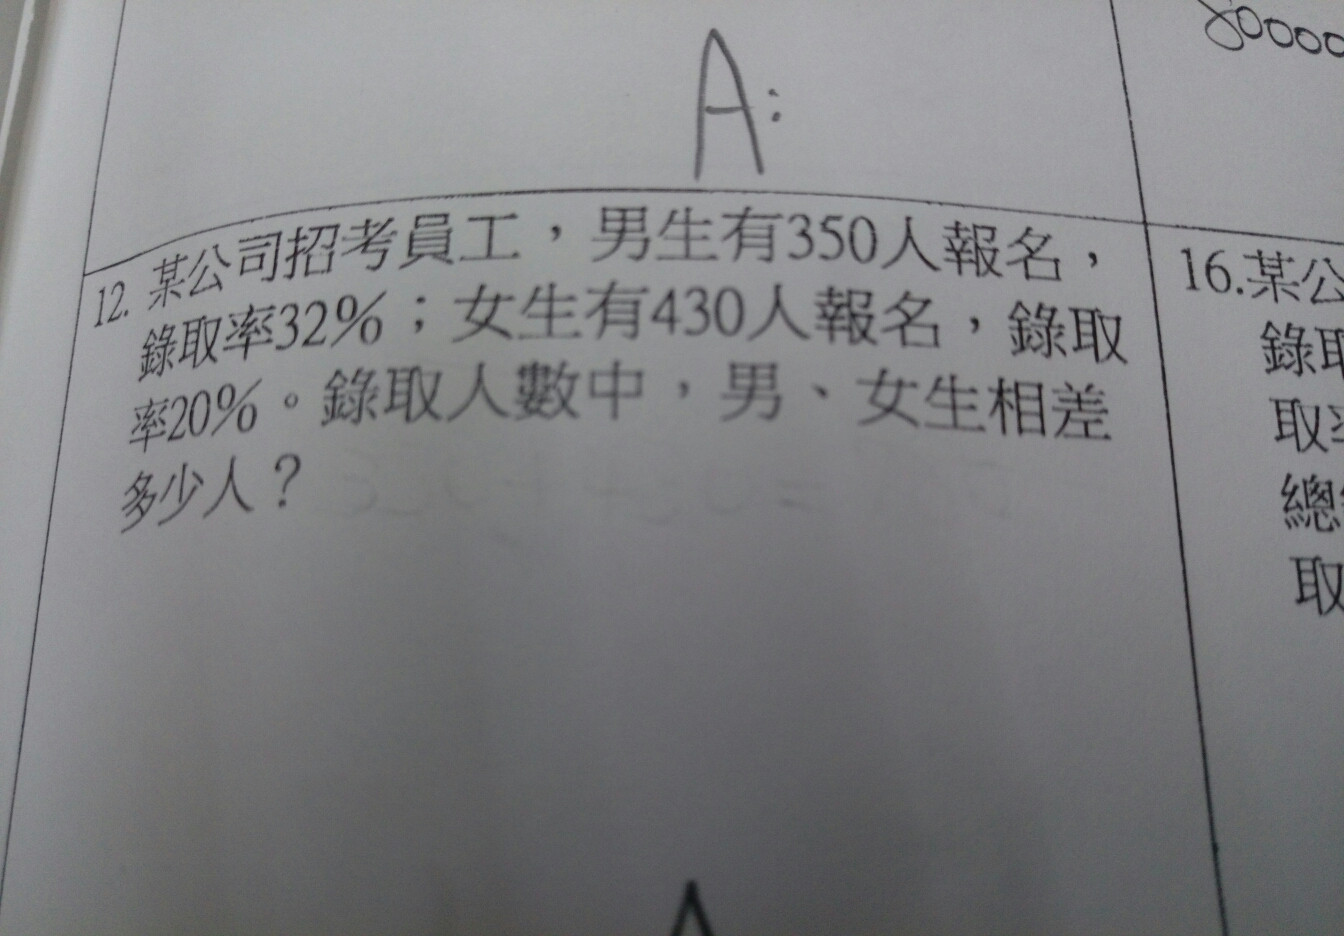 80000
A:
12. 某公司招考員工，男生有350人報名，
錄取率32%；女生有430人報名，錄取
率20%。錄取人數中，男、女生相差
多少人？
16.某公
錄取
取率
總
取